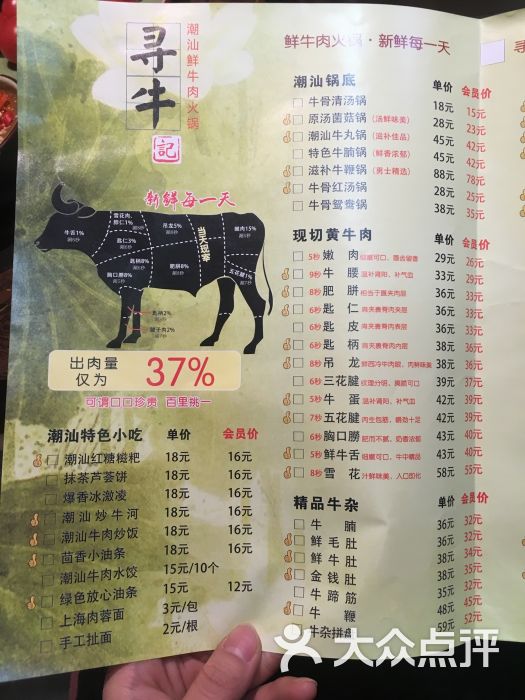 寻牛
記
潮汕鲜牛肉火锅
新鲜每一天
牛舌1%
雪花肉、
吊龙5%
当天现宰
嫩肉15%
匙仁3%
匙柄8%
肥胼8%
胸口朥8%
五花腱1%
匙柄2%
腱子肉2%
出肉量
仅为 37%
可谓口口珍贵 百里挑一
潮汕特色小吃 单价 会员价
潮汕红糖糍粑 18元 16元
抹茶芦荟饼 18元 16元
爆香冰激凌 18元 16元
潮汕炒牛河 18元 16元
潮汕牛肉炒饭 18元 16元
茴香小油条 18元 16元
潮汕牛肉水饺 15元/10个
绿色放心油条 15元 12元
上海肉蓉面 3元/包
手工扯面 2元/根
鲜牛肉火锅·新鲜每一天
潮汕锅底 单价 会员价
牛骨清汤锅 18元 15元
原汤菌菇锅（汤鲜味美） 28元 23元
潮汕牛丸锅（滋补佳品） 45元 42元
特色牛腩锅（鲜香浓郁） 45元 42元
滋补牛鞭锅（男士精选） 88元 78元
牛骨红汤锅 28元 25元
牛骨鸳鸯锅 38元 35元
现切黄牛肉 单价 会员价
5秒 嫩肉 细嫩可口、唇齿留香 29元 26元
9秒 牛腰 温补肾阳、补气血 33元 29元
8秒 肥胼 相当于匙夹肉层 36元 33元
6秒 匙仁 肉夹唇脊肉夹层 36元 33元
6秒 匙皮 肉夹唇脊肉表层 36元 33元
6秒 匙柄 肉夹唇脊肉内层 36元 33元
8秒 吊龙 即西冷牛肉眼、肉鲜味美 38元 36元
6秒 三花腱 纹理分明、爽脆可口 39元 36元
5秒 牛蛋 温补肾阳、补气血 42元 39元
7秒 五花腱 肉生包筋、嚼劲十足 42元 39元
6秒 胸口朥 肥而不腻、奶香浓郁 43元 40元
5秒 鲜牛舌 细嫩可口、牛中精品 43元 40元
8秒 雪花 汁鲜味美、入口即化 58元 55元
精品牛杂 单价 会员价
牛腩 36元 32元
鲜毛肚 36元 32元
鲜牛肚 38元 34元
金钱肚 38元 35元
牛蹄筋 35元 32元
牛鞭 48元 45元
牛杂拼盘 59元 52元
大众点评